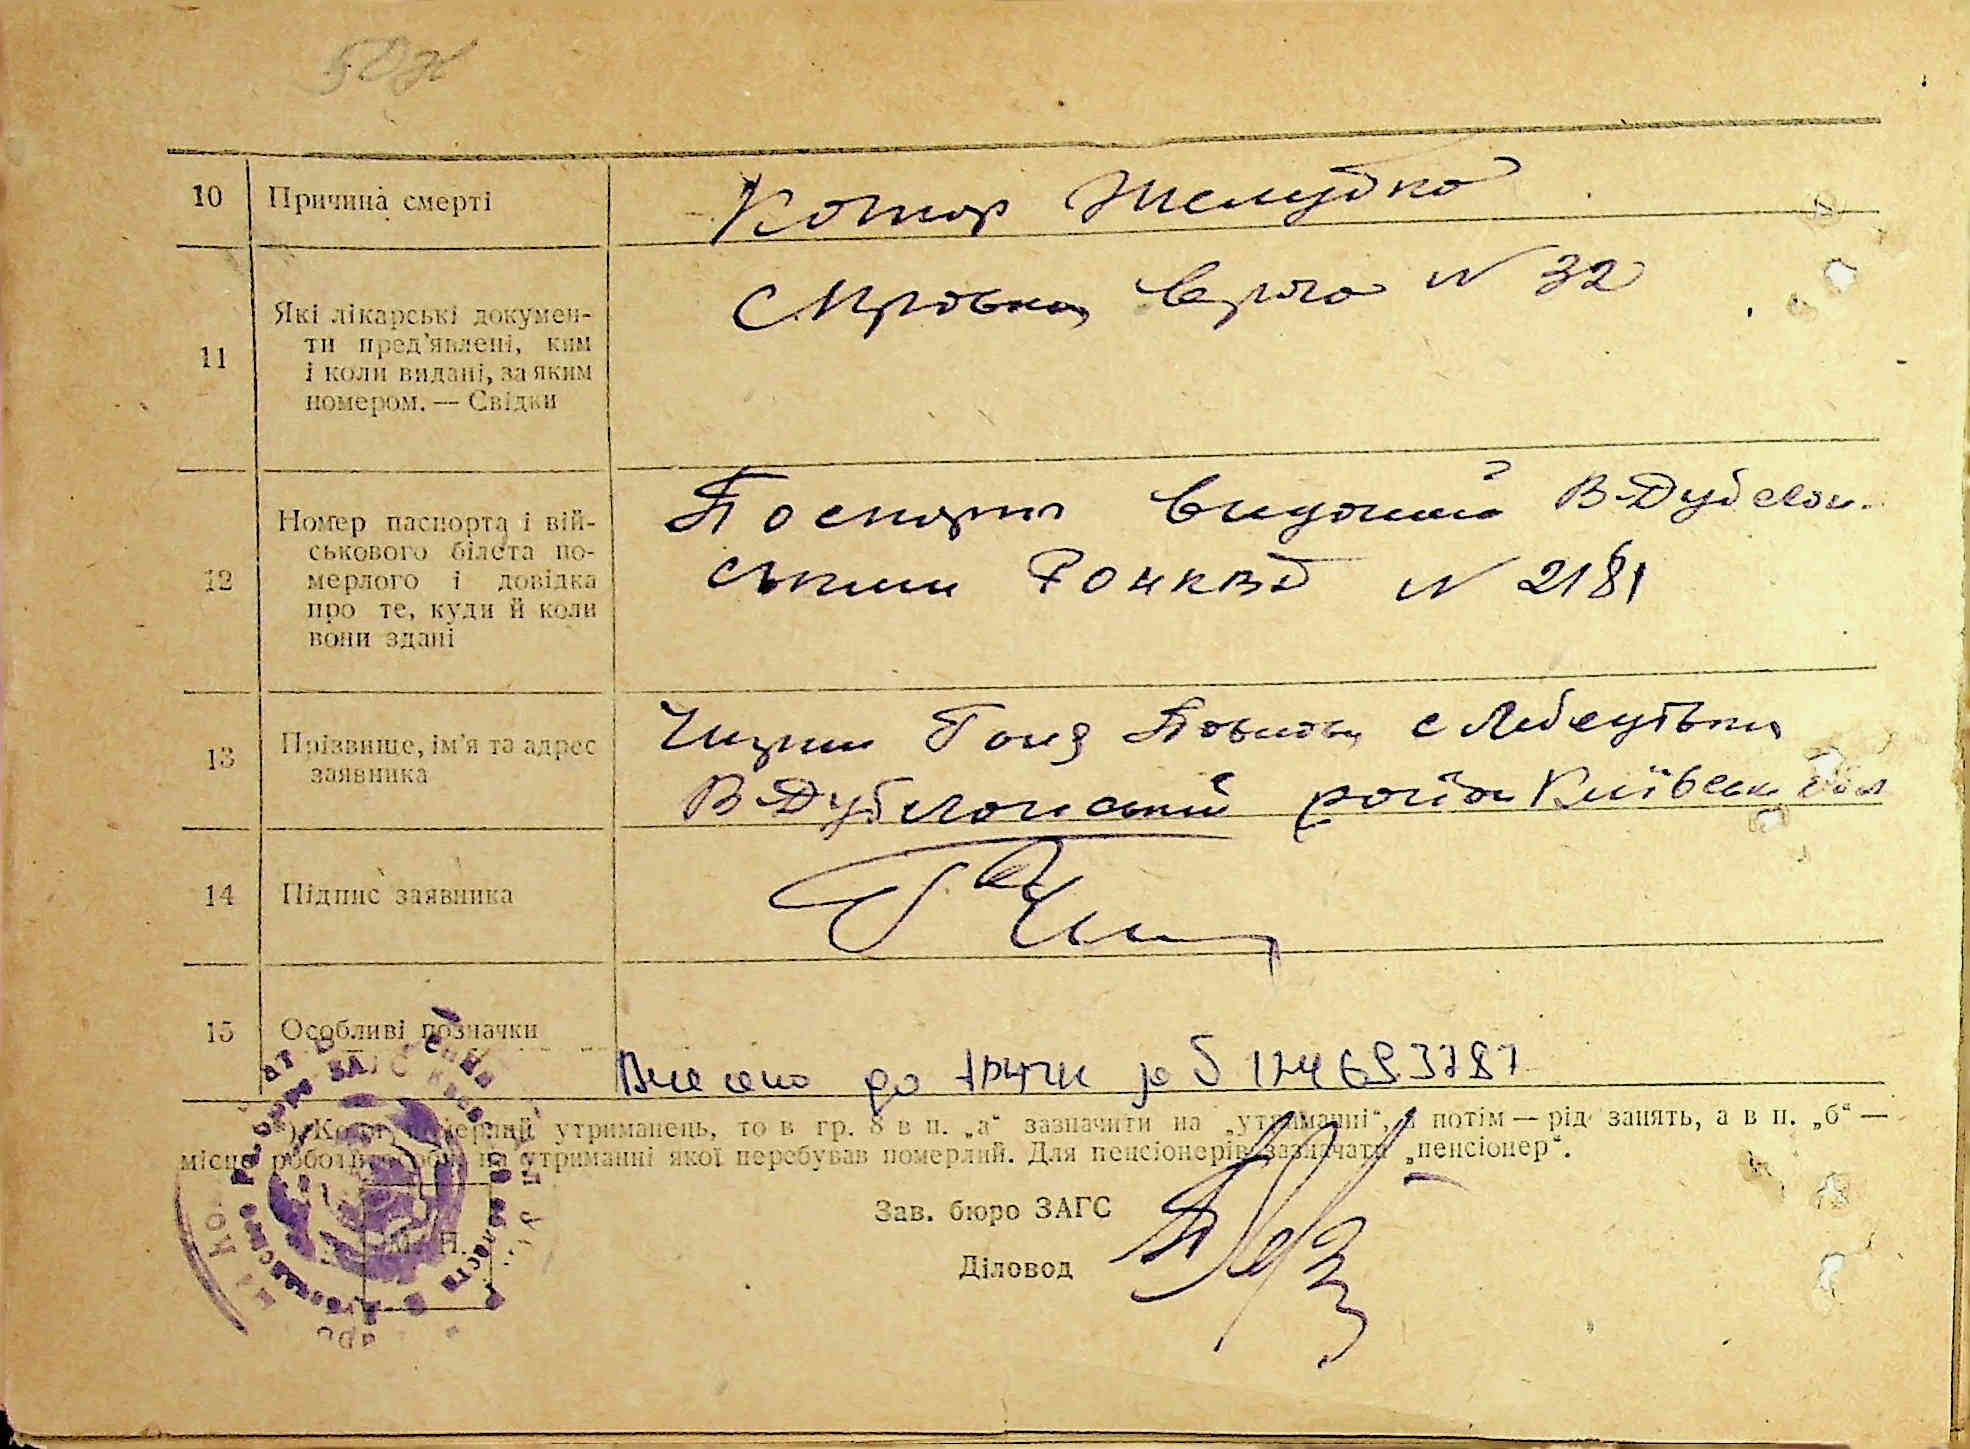 10 Причина смерті Катар Желудка
11 Які лікарські докумен-
ти пред'явлені, ким
і коли видані, за яким
номером. — Свідки
Справка врача № 32
12 Номер паспорта і вій-
ськового білета по-
мерлого і довідка
про те, куди й коли
вони здані
Паспорт виданий В-Дубечан-
ським РОНКВД № 2181
13 Прізвище, ім'я та адрес
заявника
Ганя с
В-Дубечанський район Київськ обл
14 Підпис заявника
15 Особливі позначки
Внесено до за № 124693787
*) Коли померлий утриманець, то в гр. 8 в п. „а“ зазначити на „утриманні“, а потім — рід занять, а в п. „б“ —
місце роботи особи, на утриманні якої перебував померлий. Для пенсіонерів зазначати „пенсіонер“.
Зав. бюро ЗАГС
Діловод
М. П.